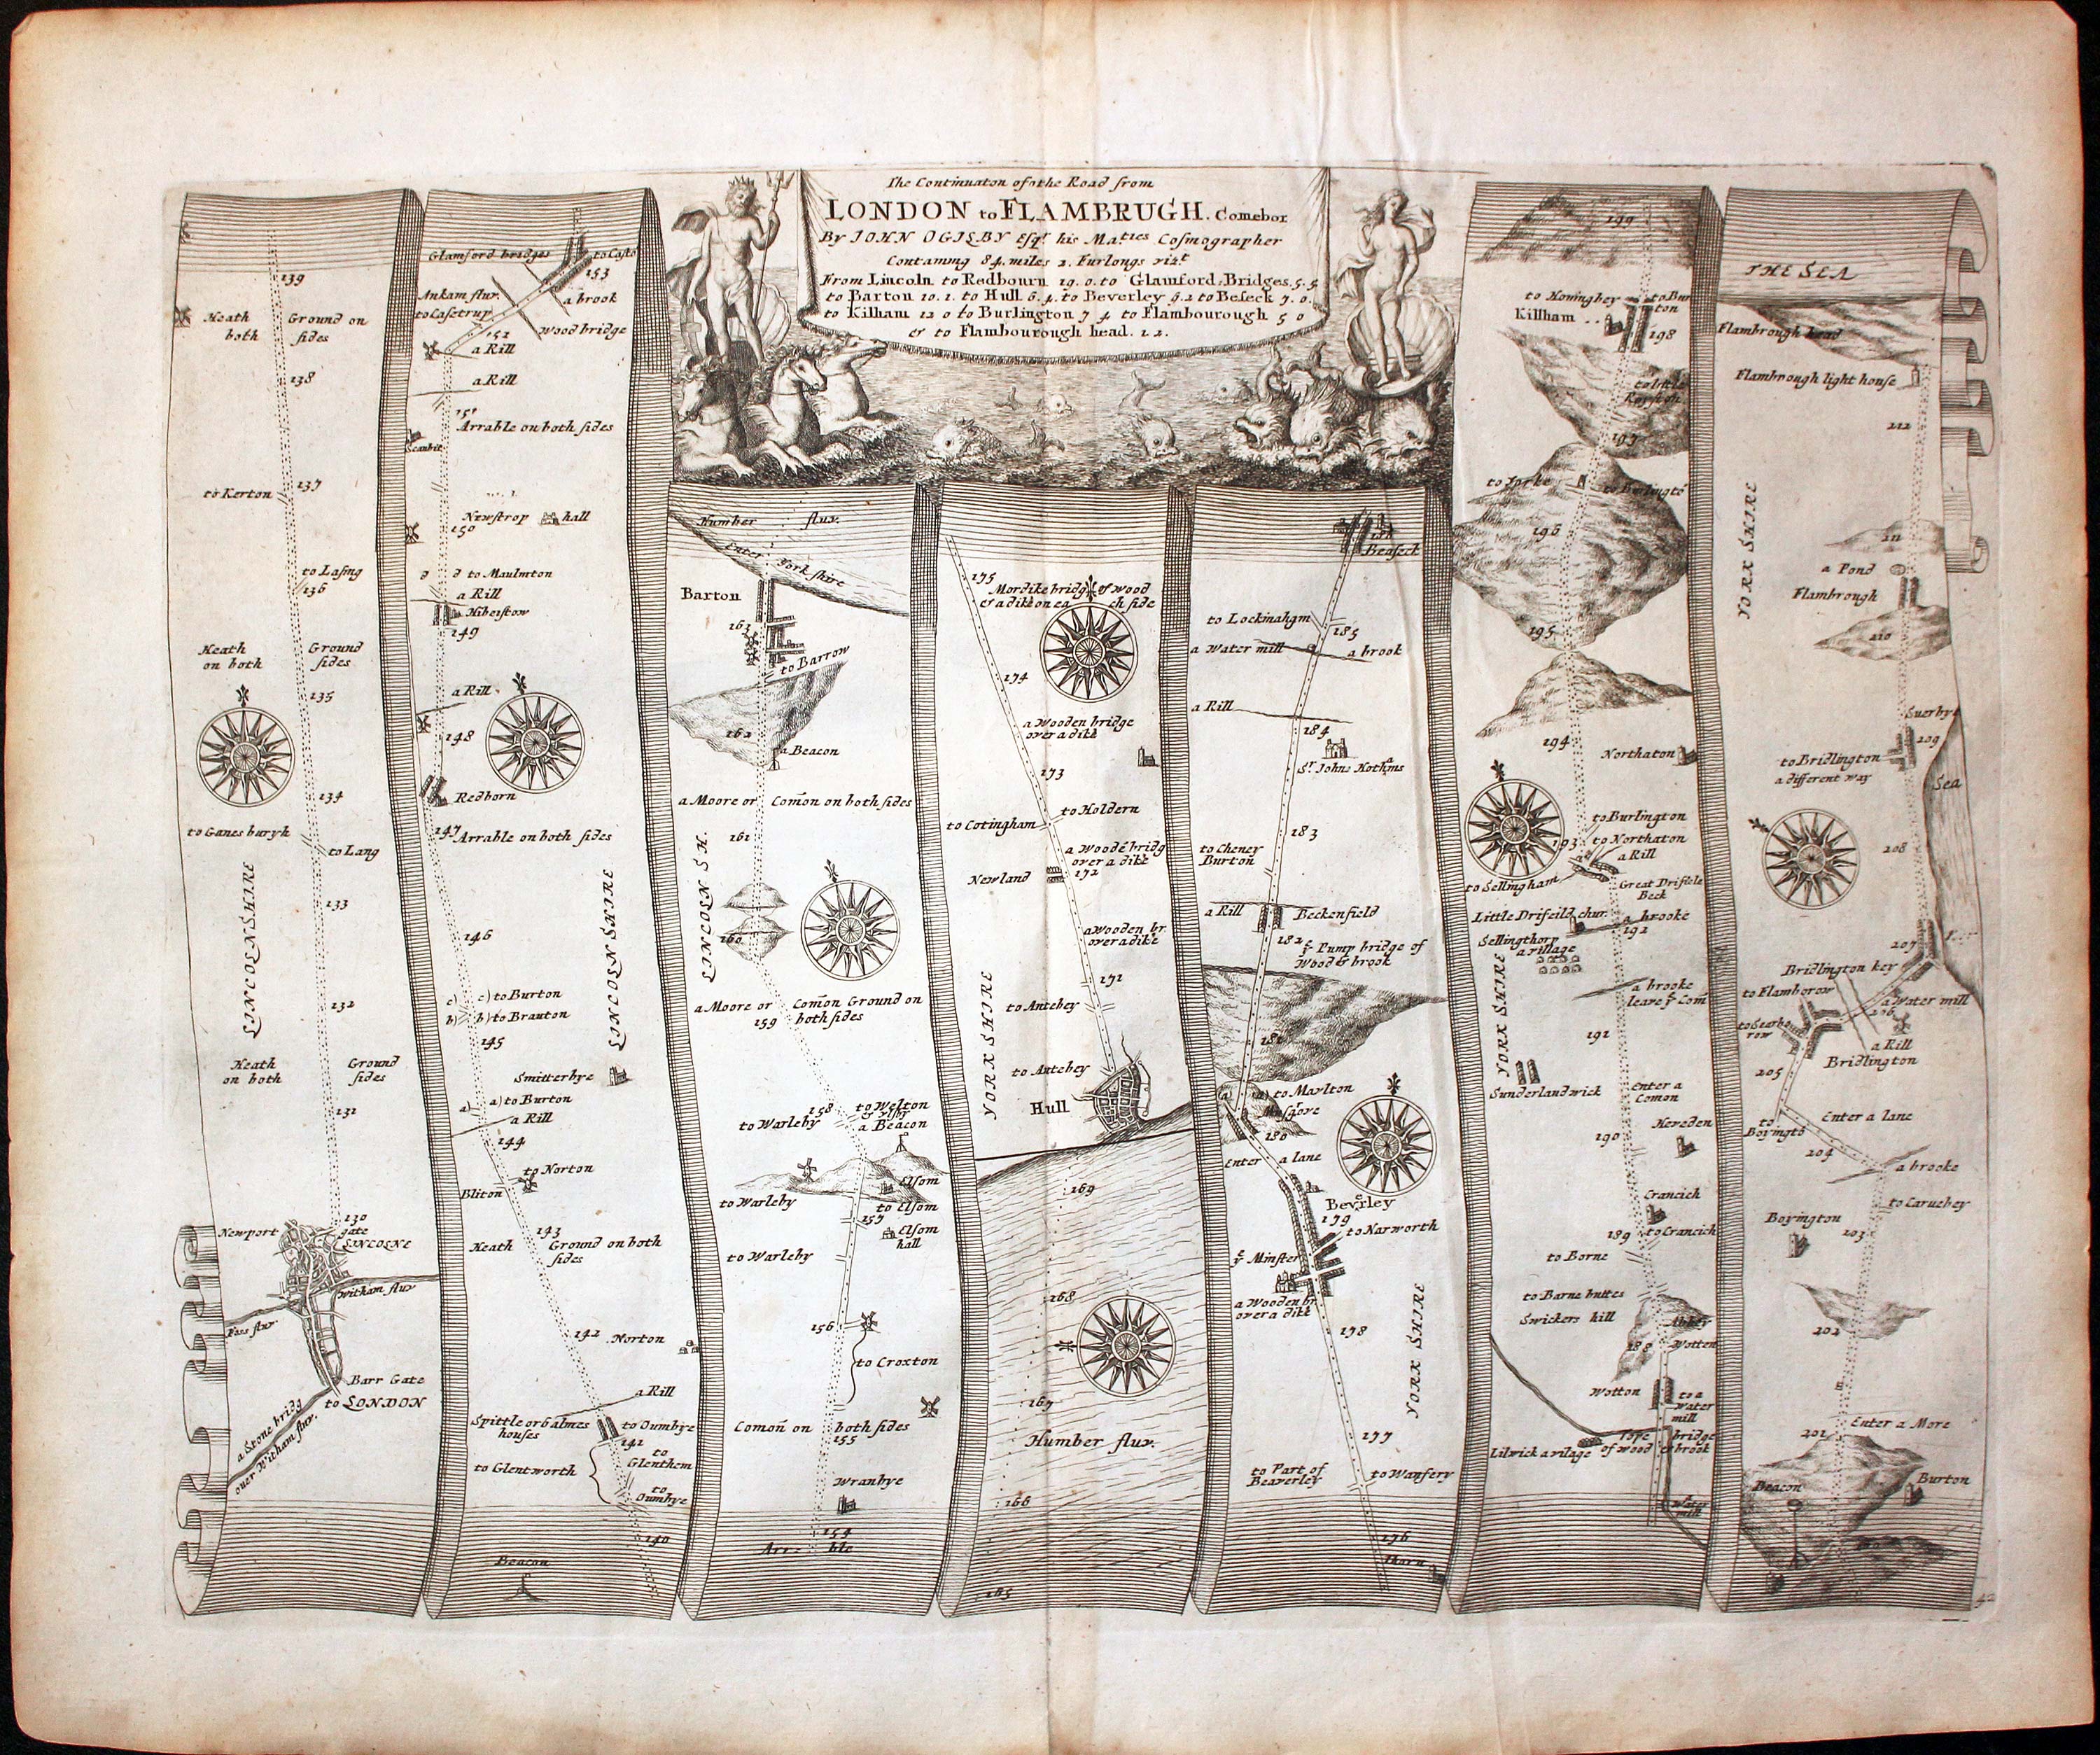 The Continuaton of the Road from
LONDON to FLAMBRUGH. Comebor
By JOHN OGILBY Esqr. his Maties Cosmographer
Containing 84. miles 2. Furlongs vizt
From Lincoln to Redbourn 19. 0. to Glamford Bridges. 5. 5
to Barton 10. 1. to Hull 6. 4. to Beverley 9. 2 to Beseck 7. 0.
to Kilham 12 0 to Burlington 7 4 to Flambourough 5 0
& to Flambourough head. 2 2.
139
Heath
both
Ground on
sides
138
to Kerton
137
to Lasing
136
Heath
on both
Ground
sides
135
134
to Ganesburyh
to Lang
133
LINCOLNSHIRE
132
Heath
on both
Ground
sides
131
130
Newport
gate
LINCOLNE
Witham flur
Foss flur
Barr Gate
to LONDON
a Stone bridg
over Witham flur.
Glamford bridges
to Casto
153
Ankam flur.
a brook
to Casetrup
152
Wood bridge
a Rill
a Rill
151
Arrable on both sides
Scanbit
Newstrop hall
150
d d to Maulmton
a Rill
Hibelstow
149
a Rill
148
Redborn
147
Arrable on both sides
146
LINCOLN SHIRE
c) c) to Burton
b) b) to Brauton
145
Smitterbye
a) a) to Burton
a Rill
144
to Norton
Bliton
143
Heath
Ground on both
sides
142
Norton
a Rill
Spittle or 6 almes
houses
to Oumbye
141
to
Glenthem
to Glentworth
to
Oumbye
140
Beacon
Humber flur.
Enter York shire
Barton
163
to Barrow
162
a Beacon
a Moore or Comon on both sides
161
LINCOLN SH.
160
a Moore or Comon Ground on
159 both sides
158
to Welton
to Warleby
a Beacon
Elsom
to Warleby
to Elsom
157
Elsom
hall
to Warleby
156
to Croxton
Comon on both sides
155
Wranbye
154
Arrable
175
Mordike bridg of wood
& a dike on each side
174
a Wooden bridge
over a dike
173
to Holdern
to Cotingham
a Woode bridg
over a dike
172
Newland
a Wooden br
over a dike
171
to Antebey
YORK SHIRE
to Antebey
Hull
169
168
167
Humber flur.
166
165
186
Beaseck
to Lockinahgm
185
a Water mill
a brook
a Rill
184
St. Johns Hothms
183
to Cheney
Burton
a Rill
Beckenfield
182
Pump bridge of
Wood & brook
181
(a)
(a) to Marlton
180
Enter a lane
Beverley
179
to Harworth
ye Minster
a Wooden br
over a dike
178
YORK SHIRE
177
to Part of
Beaverley
to Wanfery
176
Thorn
199
to Honinghey
to Burton
Killham
198
to little
197
to Burlingto
196
195
194
Northaton
to Burlington
193
to Northaton
a Rill
to Sellingham
Great Drifeile
Beck
Little Drifeild chur.
a brooke
192
Sellingthorp
a village
a brooke
leave ye Com
YORK SHIRE
191
Sunderlandwick
Enter a
Comon
190
Hereden
Crancich
189
to Crancich
to Borne
to Barne buttes
Swickers hill
Abbey
188
Wotten
Wotton
to a
Water
mill
bridge
of wood & brook
Lilwick a vilage
Water
mill
THE SEA
Flambrough head
Flambrough light house
212
YORK SHIRE
211
a Pond
Flambrough
210
Suerbye
209
to Bridlington
a different way
Sea
208
207
Bridlington key
to Flamborow
a Water mill
206
to Scarborow
a Rill
Bridlington
205
Enter a lane
to
Boyingto
204
a brooke
to Caruebey
Boyington
203
202
Enter a More
201
Beacon
Burton
42